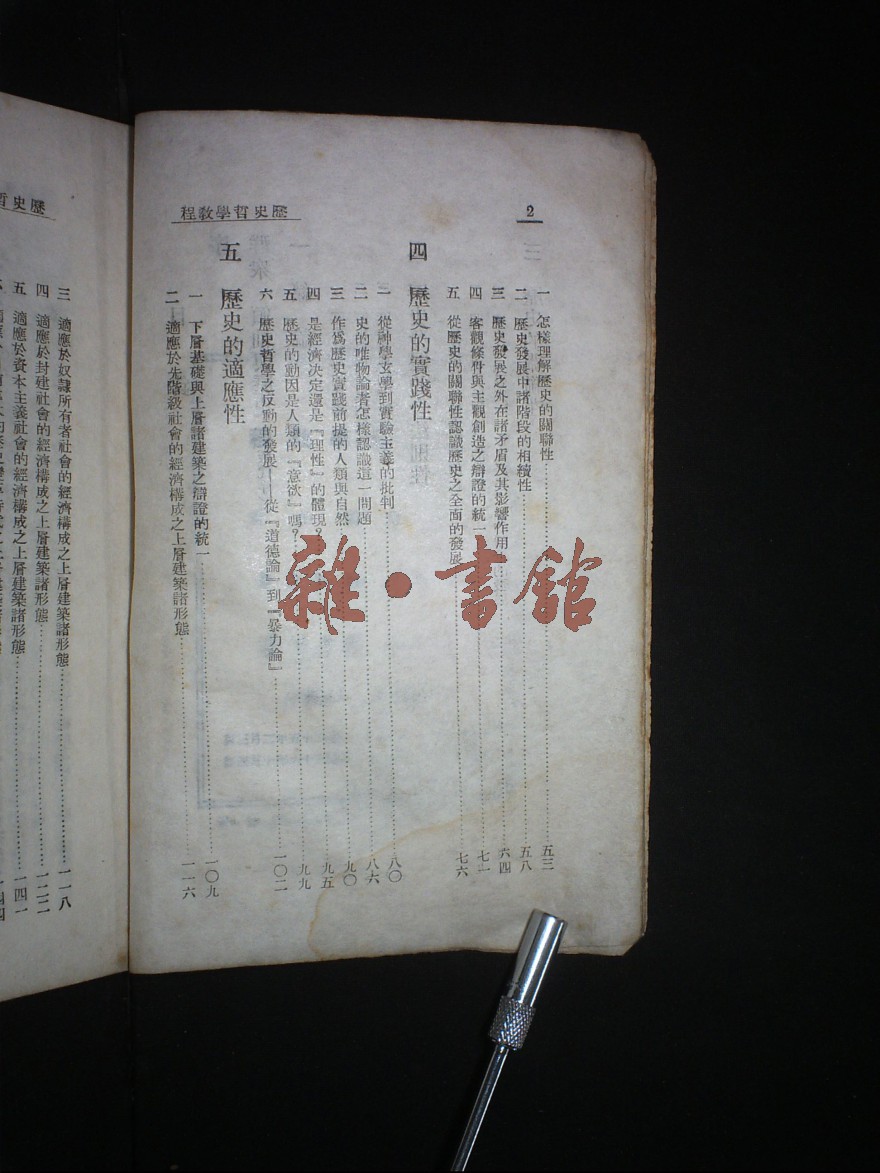 2
歷史哲學教程
一 怎樣理解歷史的關聯性 五三
二 歷史發展中諸階段的相續性 五八
三 歷史發展之外在諸矛盾及其影響作用 六四
四 客觀條件與主觀創造之辯證的統一 七一
五 從歷史的關聯性認識歷史之全面的發展 七六
四 歷史的實踐性
一 從神學玄學到實驗主義的批判 八〇
二 史的唯物論者怎樣認識這一問題 八六
三 作為歷史實踐前提的人類與自然 九〇
四 是經濟決定還是『理性』的體現？ 九五
五 歷史的動因是人類的『意欲』嗎？ 九九
六 歷史哲學之反動的發展——從『道德論』到『暴力論』 一〇二
五 歷史的適應性
一 下層基礎與上層諸建築之辯證的統一 一〇九
二 適應於先階級社會的經濟構成之上層建築諸形態 一一六
歷史哲
三 適應於奴隸所有者社會的經濟構成之上層建築諸形態 一一八
四 適應於封建社會的經濟構成之上層建築諸形態 一二二
五 適應於資本主義社會的經濟構成之上層建築諸形態 一四一
雜·書館